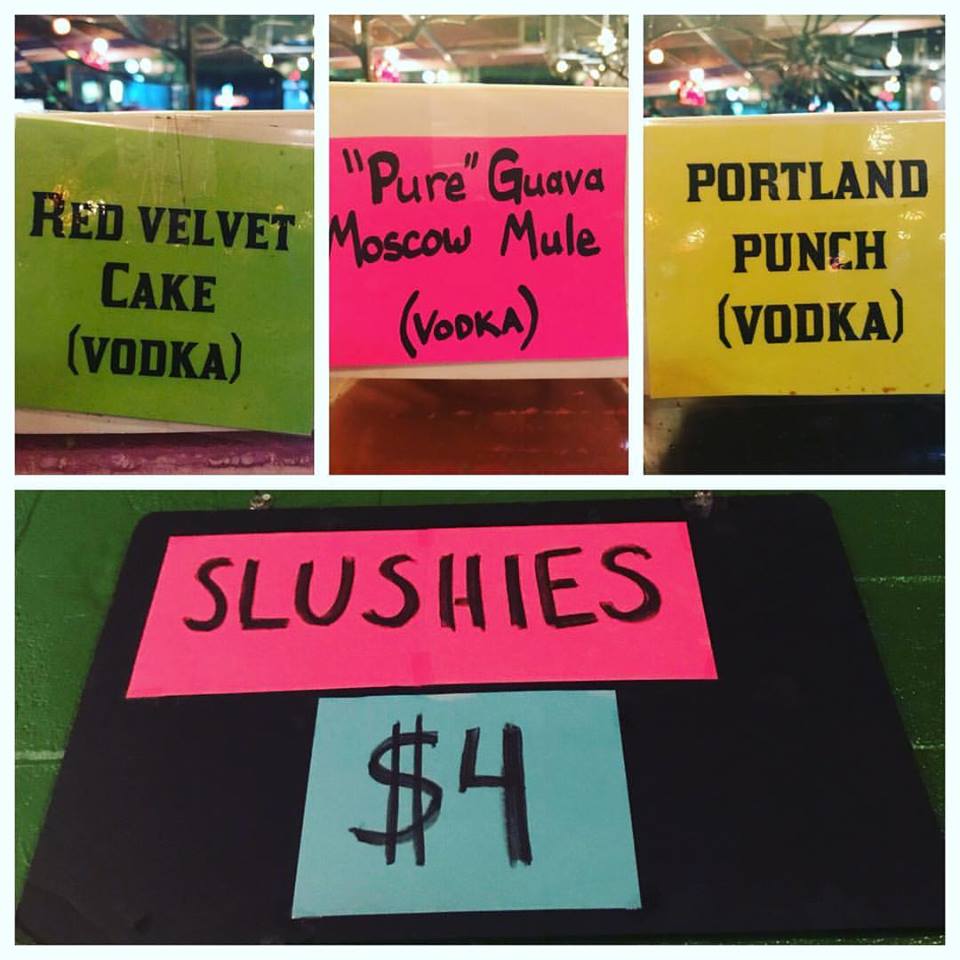 RED VELVET
CAKE
(VODKA)
"Pure" Guava
Moscow Mule
(VODKA)
PORTLAND
PUNCH
(VODKA)
SLUSHIES
$4